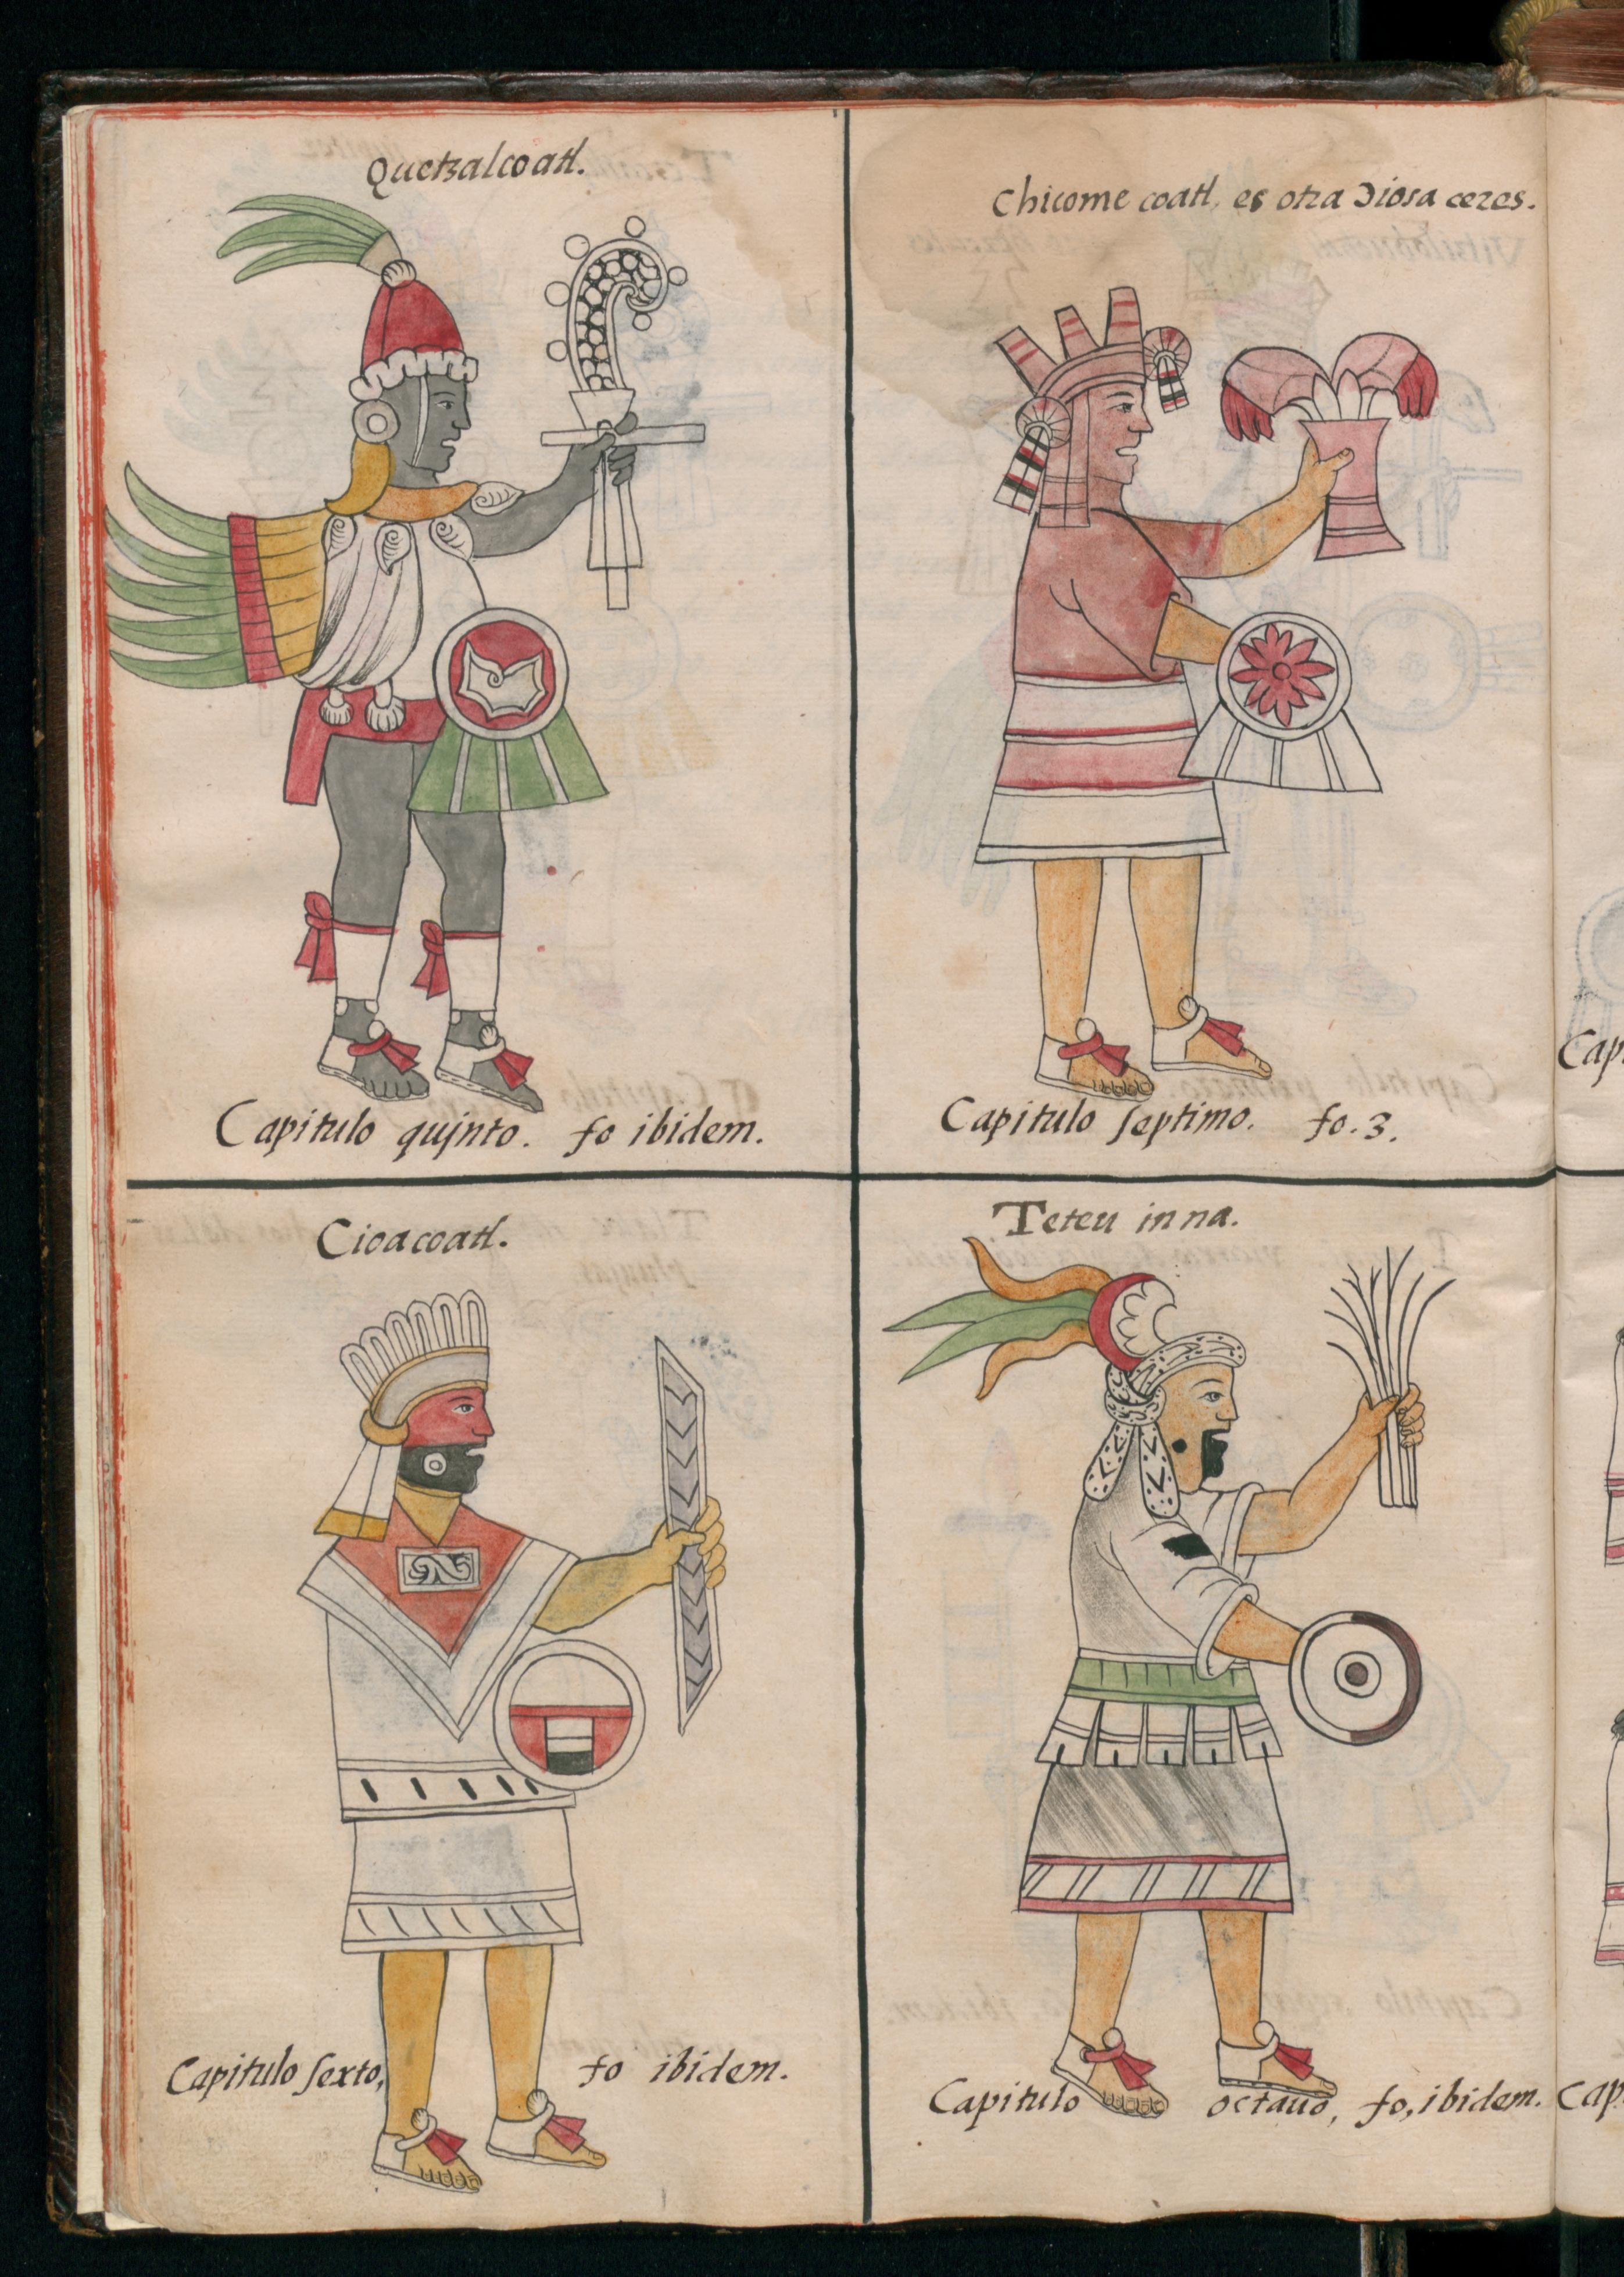 Quetzalcoatl.
Capitulo qujnto. fo ibidem.
Chicome coatl, es otra Diosa ceres.
Capitulo septimo. fo. 3.
Cioacoatl.
Capitulo sexto, fo ibidem.
Teteu inna.
Capitulo octauo, fo, ibidem.
Cap
Cap